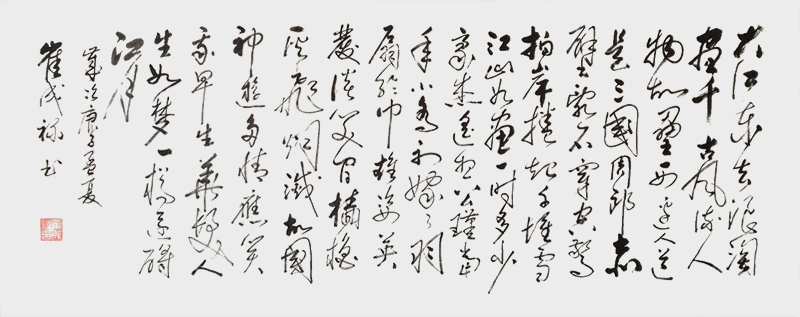 大江东去浪淘
尽千古风流人
物故垒西边人道
是三國周郎赤
壁乱石穿空惊
拍岸捲起千堆雪
江山如畫一时多少
豪杰遥想公瑾当
年小乔初嫁了羽
扇纶巾雄姿英
發谈笑间樯橹
灰飛烟滅故國
神遊多情應笑
我早生華髮人
生如梦一樽还酹
江月
歲次庚子孟夏
崔成禄书